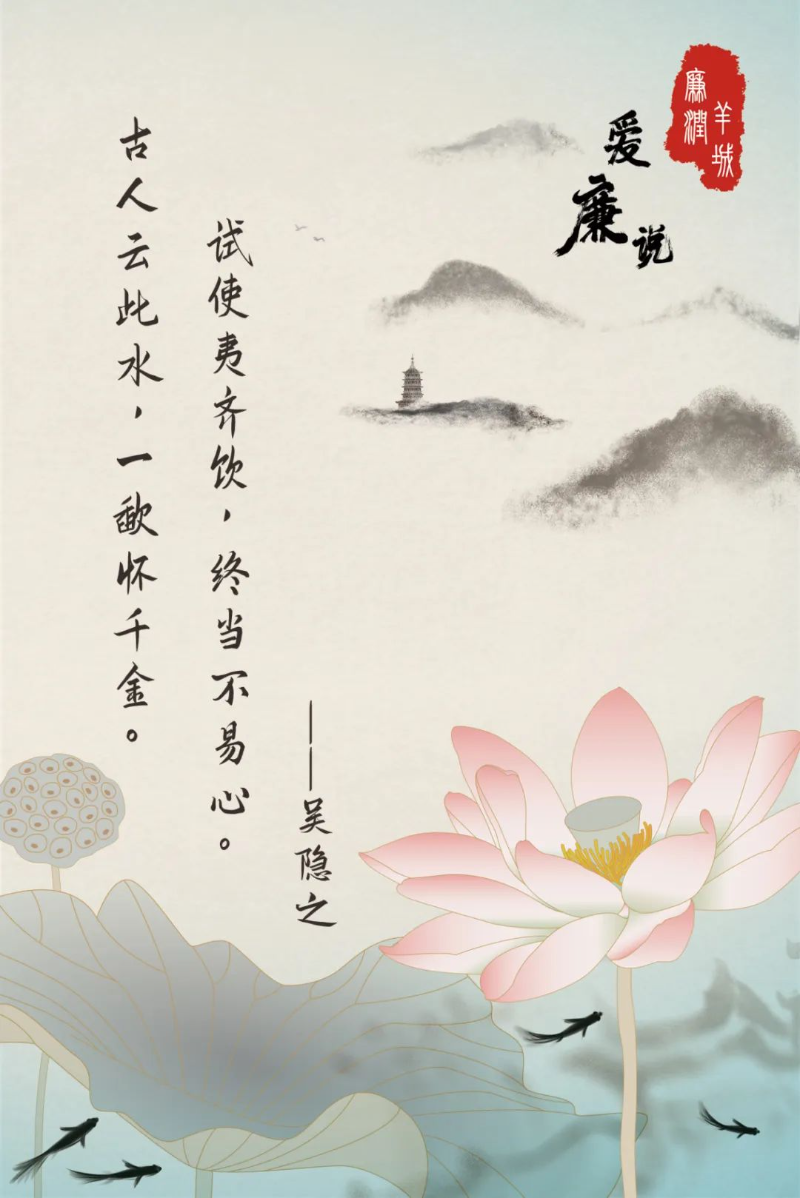 廉潤
羊城
爱廉说
古人云此水，一歃怀千金。
试使夷齐饮，终当不易心。
——吴隐之